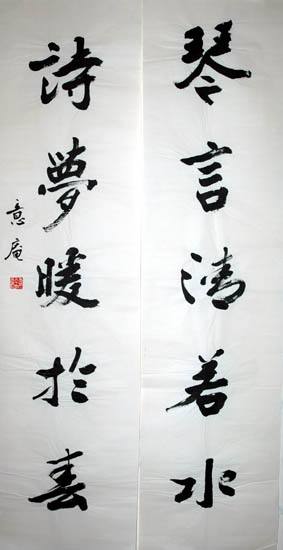 琴言清若水
詩夢暖於春
意庵